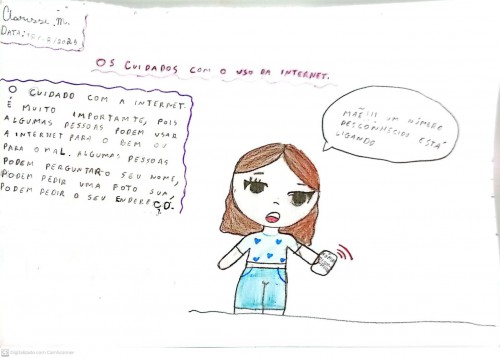 Clarisse. M.
DATA:
OS CUIDADOS COM O USO DA INTERNET.
O CUIDADO COM A INTERNET.
É MUITO IMPORTANTE, POIS
ALGUMAS PESSOAS PODEM USAR
A INTERNET PARA O BEM OU
PARA O MAL. ALGUMAS PESSOAS
PODEM PERGUNTAR O SEU NOME,
PODEM PEDIR UMA FOTO SUA,
PODEM PEDIR O SEU ENDEREÇO.
MÃE!!! UM NÚMERO
DESCONHECIDO ESTÁ
LIGANDO
Digitalizado com CamScanner